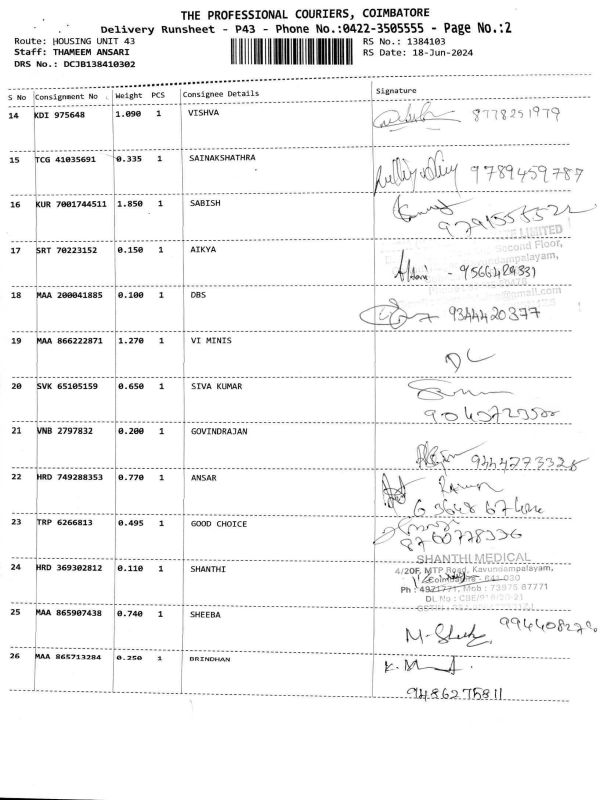 THE PROFESSIONAL COURIERS, COIMBATORE
Delivery Runsheet - P43 - Phone No.:0422-3505555 - Page No.:2
Route: HOUSING UNIT 43 RS No.: 1384103
Staff: THAMEEM ANSARI RS Date: 18-Jun-2024
DRS No.: DCJB138410302
S No Consignment No Weight PCS Consignee Details Signature
14 KDI 975648 1.090 1 VISHVA 8778251979
15 TCG 41035691 0.335 1 SAINAKSHATHRA 9789459787
16 KUR 7001744511 1.850 1 SABISH
LIMITED
Second Floor,
17 SRT 70223152 0.150 1 AIKYA
9566429331
18 MAA 200041885 0.100 1 DBS
9344420377
19 MAA 866222871 1.270 1 VI MINIS
DC
20 SVK 65105159 0.650 1 SIVA KUMAR
21 VNB 2797832 0.200 1 GOVINDRAJAN
9444273328
22 HRD 749288353 0.770 1 ANSAR
23 TRP 6266813 0.495 1 GOOD CHOICE
8760778336
SHANTHI MEDICAL
24 HRD 369302812 0.110 1 SHANTHI
4/20F, MTP Road, Kavundampalayam,
Coimbatore - 641 030
Ph : 4971771, Mob : 73975 67771
25 MAA 865907438 0.740 1 SHEEBA
M. Sheeba 994408278
26 MAA 865713284 0.250 1 BRINDHAN
9486275811